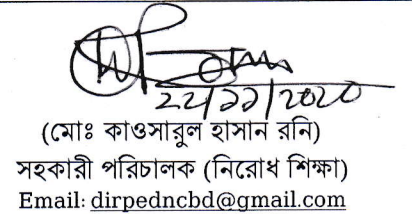 ২২/১১/২০২০
(মোঃ কাওসারুল হাসান রনি)
সহকারী পরিচালক (নিরোধ শিক্ষা)
Email: dirpedncbd@gmail.com